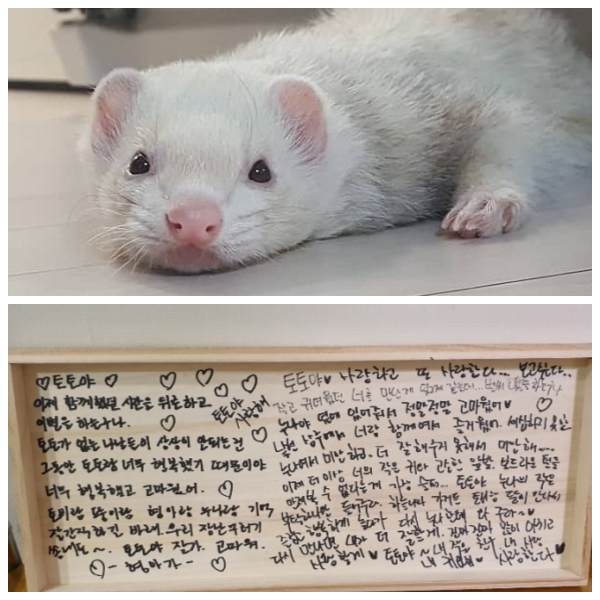 ♡토토야 ♡
이제 함께했던 시간을 뒤로하고
이별을 하는구나.
토토가 없는 나날들이 상상이 안되는건
그동안 토토랑 너무 행복했기 때문이야
너무 행복했고 고마웠어. ♡
토미랑 똘이랑 형아랑 누나랑 기억
잘간직하길 바래. 우리 장난꾸러기
토토야 잘가. 고마워.
♡- 형아가- ♡
토토야
사랑해
토토야♥ 사랑하고 또 사랑한다... 보고싶다..
작고 귀여웠던 너를 만난게
누나야 옆에 있어주셔서 정말정말 고마웠어♥
너랑 함께여서 즐거웠어. 세심하지 못한
누나여서 미안하고. 더 잘해주지 못해서 미안해...
이제 더이상 너의 작은 보드라운 털을
만져볼 수 없다는게 가장 슬퍼... 토토야 누나의 작은
다시 누나한테 와 주라~
다시 만나면 내가 더 잘할게.
토토야~ 내 작은 친구 내 사랑
사랑한다♥